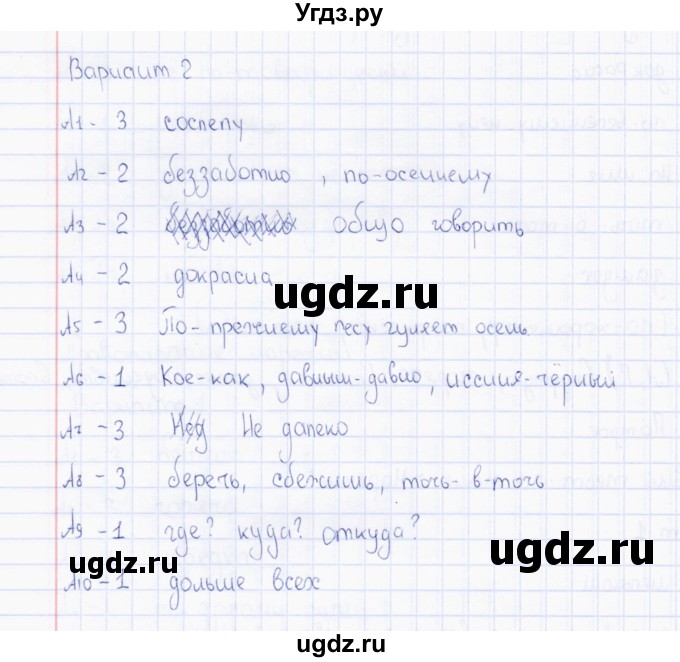 Угдз.ру
Вариант 2
А1 - 3 сослепу
А2 - 2 беззаботно, по-осеннему
А3 - 2 общо говорить
А4 - 2 докрасна
А5 - 3 По-прежнему лесу гуляет осень
А6 - 1 Кое-как, давным-давно, иссиня-чёрный
А7 - 3 Не далеко
А8 - 3 беречь, сбежишь, точь-в-точь
А9 - 1 где? куда? откуда?
А10 - 1 дольше всех
ugdz.ru
ugdz.ru
ugdz.ru
ugdz.ru